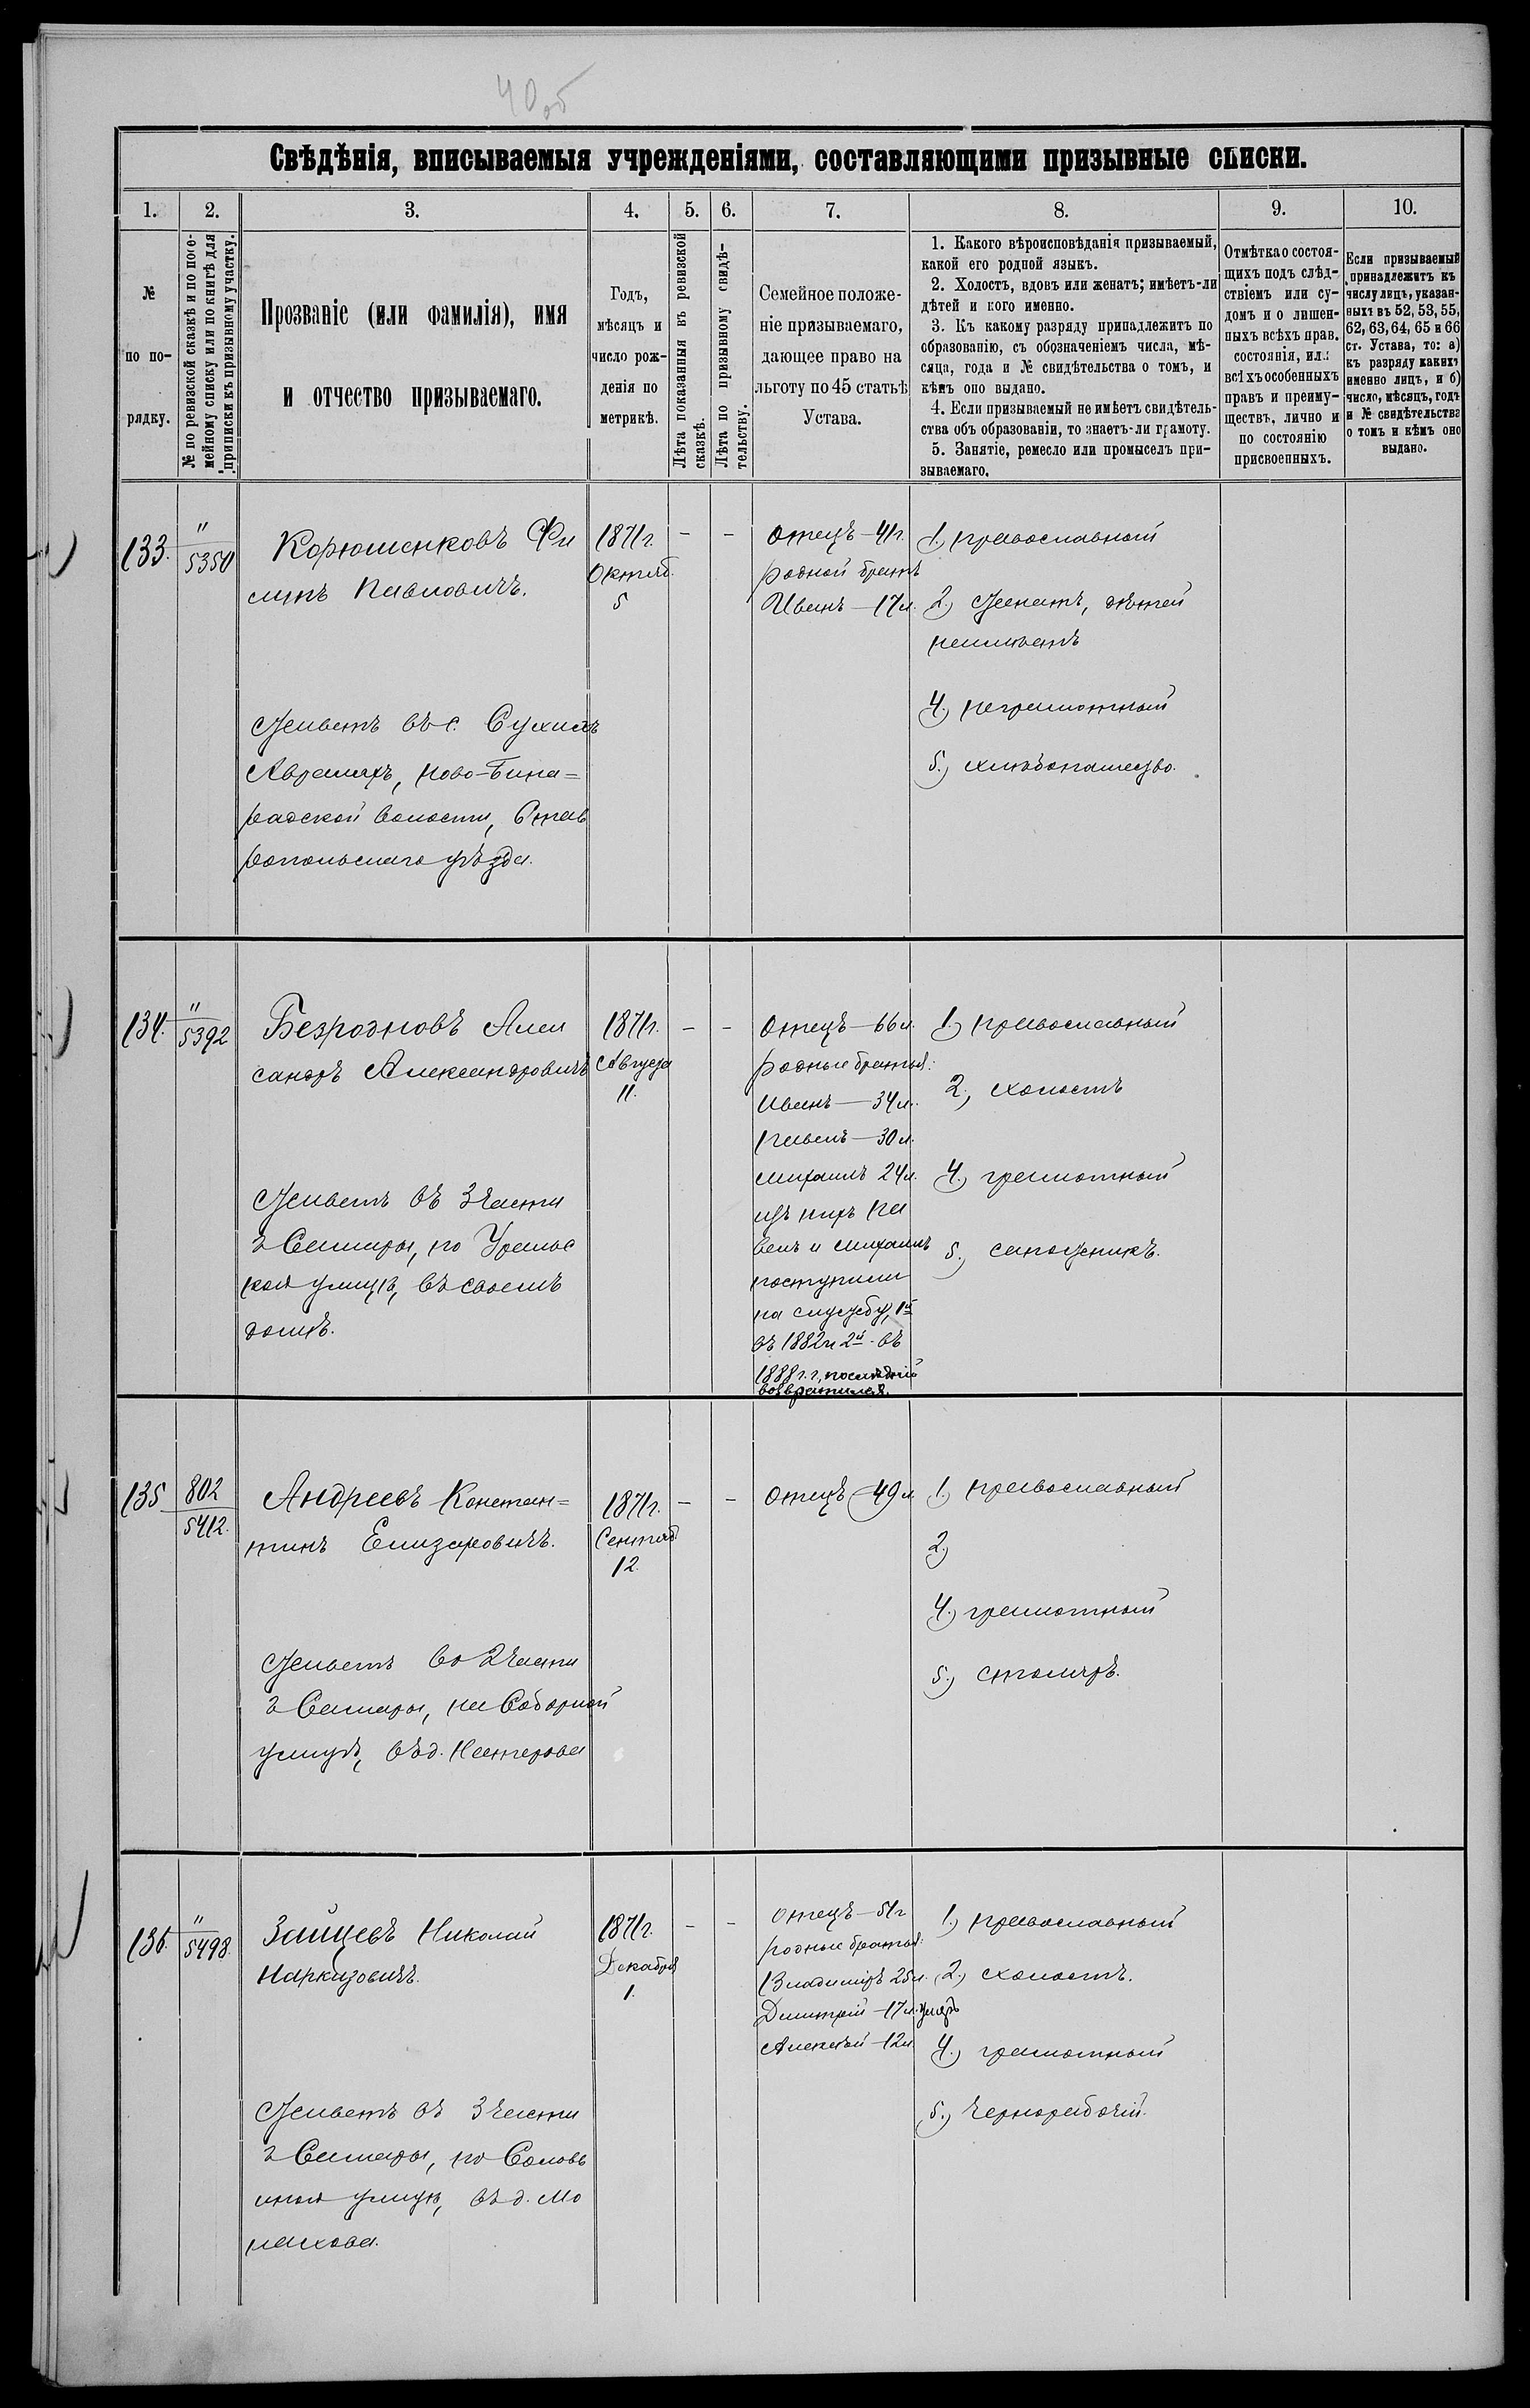 40об
Свѣдѣнія, вписываемыя учрежденіями, составляющими призывные списки.
1. 2. 3. 4. 5. 6. 7. 8. 9. 10.
№
по по-
рядку.
№ по ревизской сказкѣ и по посе-
мейному списку или по книгѣ для
приписки къ призывному участку.
Прозваніе (или фамилія), имя
и отчество призываемаго.
Годъ,
мѣсяцъ и
число рож-
денія по
метрикѣ.
Лѣта показанныя въ ревизской
сказкѣ.
Лѣта по призывному свидѣ-
тельству.
Семейное положе-
ніе призываемаго,
дающее право на
льготу по 45 статьѣ
Устава.
1. Какого вѣроисповѣданія призываемый,
какой его родной языкъ.
2. Холостъ, вдовъ или женатъ; имѣетъ-ли
дѣтей и кого именно.
3. Къ какому разряду принадлежитъ по
образованію, съ обозначеніемъ числа, мѣ-
сяца, года и № свидѣтельства о томъ, и
кѣмъ оно выдано.
4. Если призываемый не имѣетъ свидѣтель-
ства объ образованіи, то знаетъ-ли грамоту.
5. Занятіе, ремесло или промыселъ при-
зываемаго.
Отмѣтка о состоя-
щихъ подъ слѣд-
ствіемъ или су-
домъ и о лишен-
ныхъ всѣхъ прав.
состоянія, или
всѣхъ особенныхъ
правъ и преиму-
ществъ, лично и
по состоянію
присвоенныхъ.
Если призываемый
принадлежитъ къ
числу лицъ, указан-
ныхъ въ 52, 53, 55,
62, 63, 64, 65 и 66
ст. Устава, то: а)
къ разряду какихъ
именно лицъ, и б)
число, мѣсяцъ, годъ
и № свидѣтельства
о томъ и кѣмъ оно
выдано.
133.
"
5350
Корюшенковъ Фи
липъ Павловичъ.
Живетъ въ с. Сухихъ
Авраляхъ, Ново-Бина=
радской волости, Став
ропольскаго уѣзда.
1871г.
Октяб.
5
-
-
Отецъ - 41г.
родной братъ
Иванъ - 17л.
1.) православный
2.) Женатъ, дѣтей
неимѣетъ
4.) неграмотный
5.) хлѣбопашество.
134.
"
5392
Безродновъ Алек
сандръ Александровичъ
Живетъ въ 3 части
г Самары, по Уральс
кой улицѣ, въ своемъ
домѣ.
1871г.
Августа
11.
-
-
Отецъ - 66л.
родные братья:
Иванъ - 34л.
Павелъ - 30л.
Михаилъ 24л.
изъ нихъ Па
велъ и Михаилъ
поступили
на службу, 1й
въ 1882 и 2й - въ
1888 г.г, послѣдній
возвратился.
1.) православный
2.) холостъ
4.) грамотный
5.) сапожникъ.
135
802
5412.
Андреевъ Констан=
тинъ Елизаровичъ.
Живетъ во 2 части
г Самары, на Соборной
улицѣ, въ д. Нестерова
1871г.
Сентяб
12.
-
-
Отецъ - 49л
1.) православный
2.)
4.) грамотный
5.) столяръ.
136.
"
5498.
Зайцевъ Николай
Наркизовичъ.
Живетъ въ 3 части
г Самары, по Соловь
иной улицѣ, въ д. Мо
нахова.
1871г.
Декабря
1.
-
-
Отецъ - 51г
родные братья:
Владимiръ 25л.
Дмитрій - 17л. умеръ
Алексѣй - 12л
1.) православный
2.) холостъ.
4.) грамотный
5.) чернорабочій.